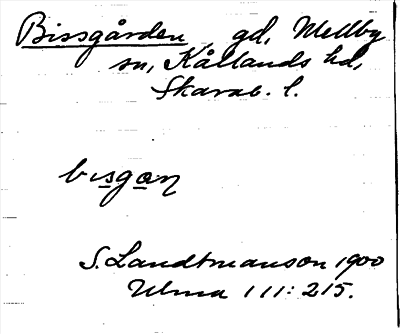 Bissgården gd, Mellby
sn, Kållands hd,
Skarab. l.
bısgaɲ
S. Landtmanson 1900
Ulma 111:215.